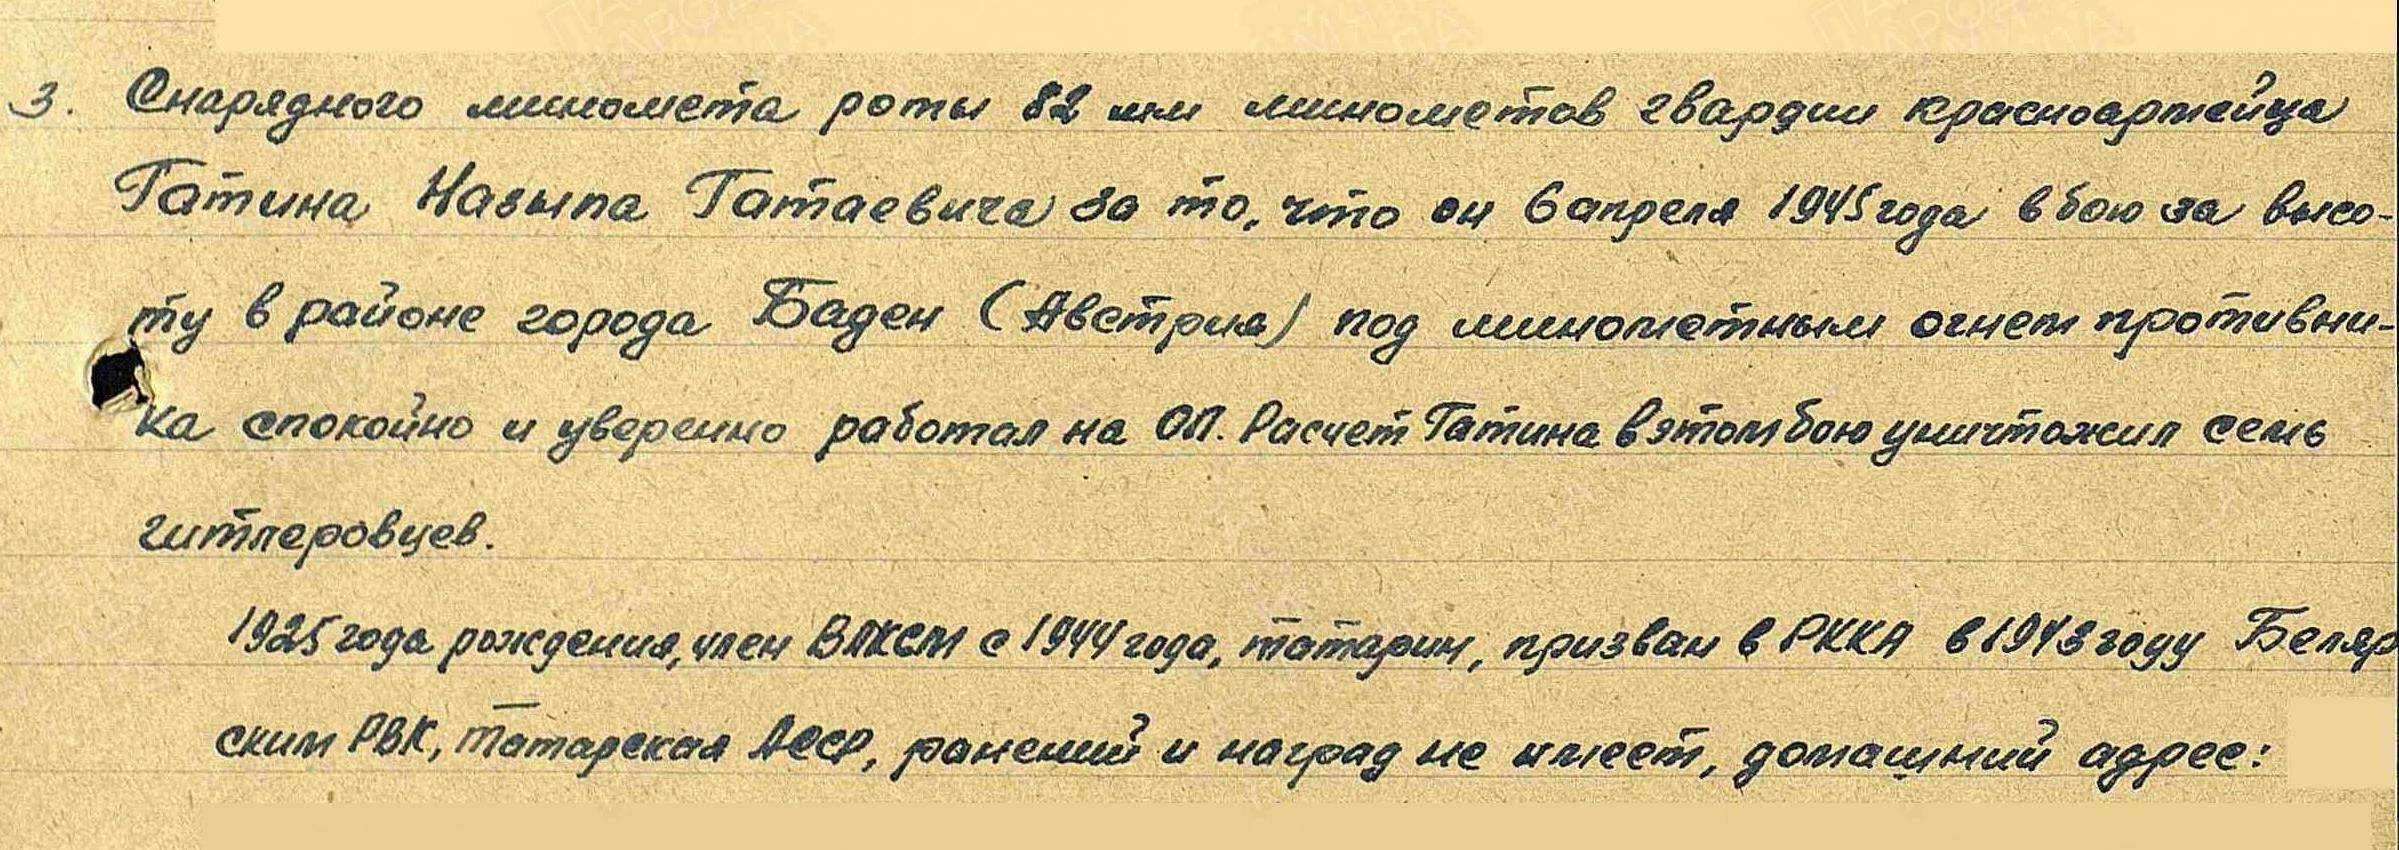 3. Снарядного миномета роты 82 мм минометов гвардии красноармейца
Гатина Назыпа Гатаевича за то, что он 6 апреля 1945 года в бою за высо-
ту в районе города Баден (Австрия) под минометным огнем противни-
ка спокойно и уверенно работал на ОП. Расчет Гатина в этом бою уничтожил семь
гитлеровцев.
1925 года рождения, член ВЛКСМ с 1944 года, татарин, призван в РККА в 1943 году Беляр
ским РВК, Татарская АССР, ранений и наград не имеет, домашний адрес: